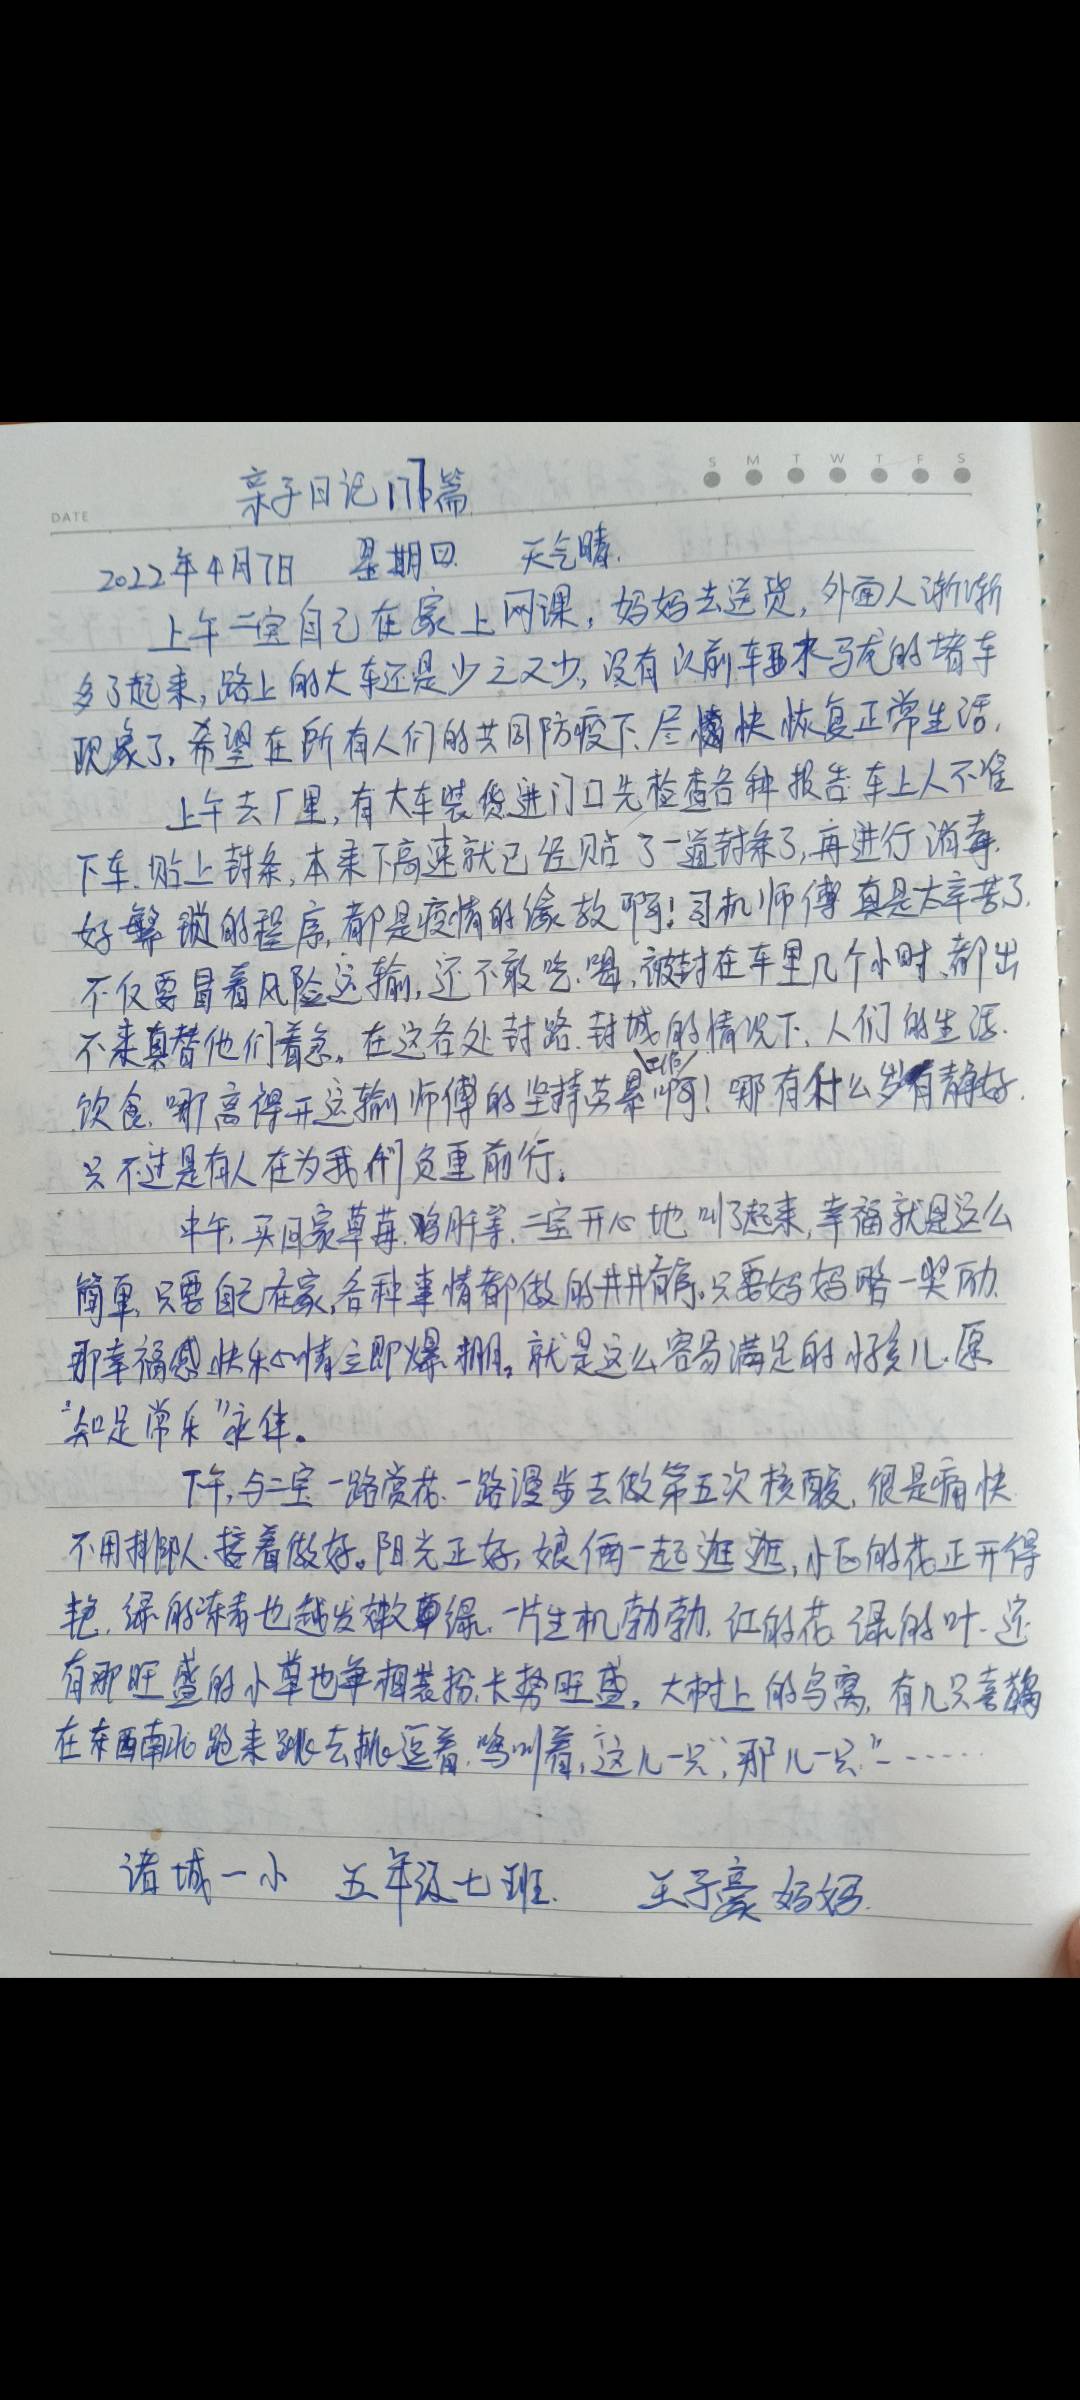 S M T W T F S
DATE
亲子日记 篇
2022年4月7日 星期四 天气晴.
上午二宝自己在家上网课,妈妈去送货,外面人渐渐
多了起来,路上的大车还是少之又少,没有以前车水马龙的堵车
现象了,希望在所有人们的共同防疫下、尽快恢复正常生活.
上午去厂里,有大车装货进门口先检查各种报告.车上人不准
下车.贴上封条,本来下高速就已经贴了一道封条了,再进行消毒.
好繁锁的程序,都是疫情的缘故啊!司机师傅真是太辛苦了.
不仅要冒着风险运输,还不敢吃.喝、被封在车里几个小时、都出
不来真替他们着急。在这各处封路.封城的情况下、人们的生活.
工作
饮食.哪离得开运输师傅的坚持 啊!哪有什么岁有静好.
只不过是有人在为我们负重前行。
中午,买回家草莓.鸡肝等.二宝开心地叫了起来,幸福就是这么
简单,只要自己在家,各种事情都做的井井有序。只要妈妈略一奖励.
那幸福感.快乐心情立即爆棚。就是这么容易满足的好孩儿.愿
“知足常乐”永伴。
下午,与二宝一路赏花.一路漫步去做第五次核酸,很是痛快
不用排队人.接着做好。阳光正好,娘俩一起逛逛,小区的花正开得
艳.绿的冻青也越发嫩绿.一片生机勃勃.红的花.绿的叶.还
有那旺盛的小草也争相装扮.长势旺盛,大树上的鸟窝,有几只喜鹊
在东西南北跑来跳去挑逗着.鸣叫着,这儿一只”,那儿一只”……
诸城一小 五年级七班. 王子豪妈妈.